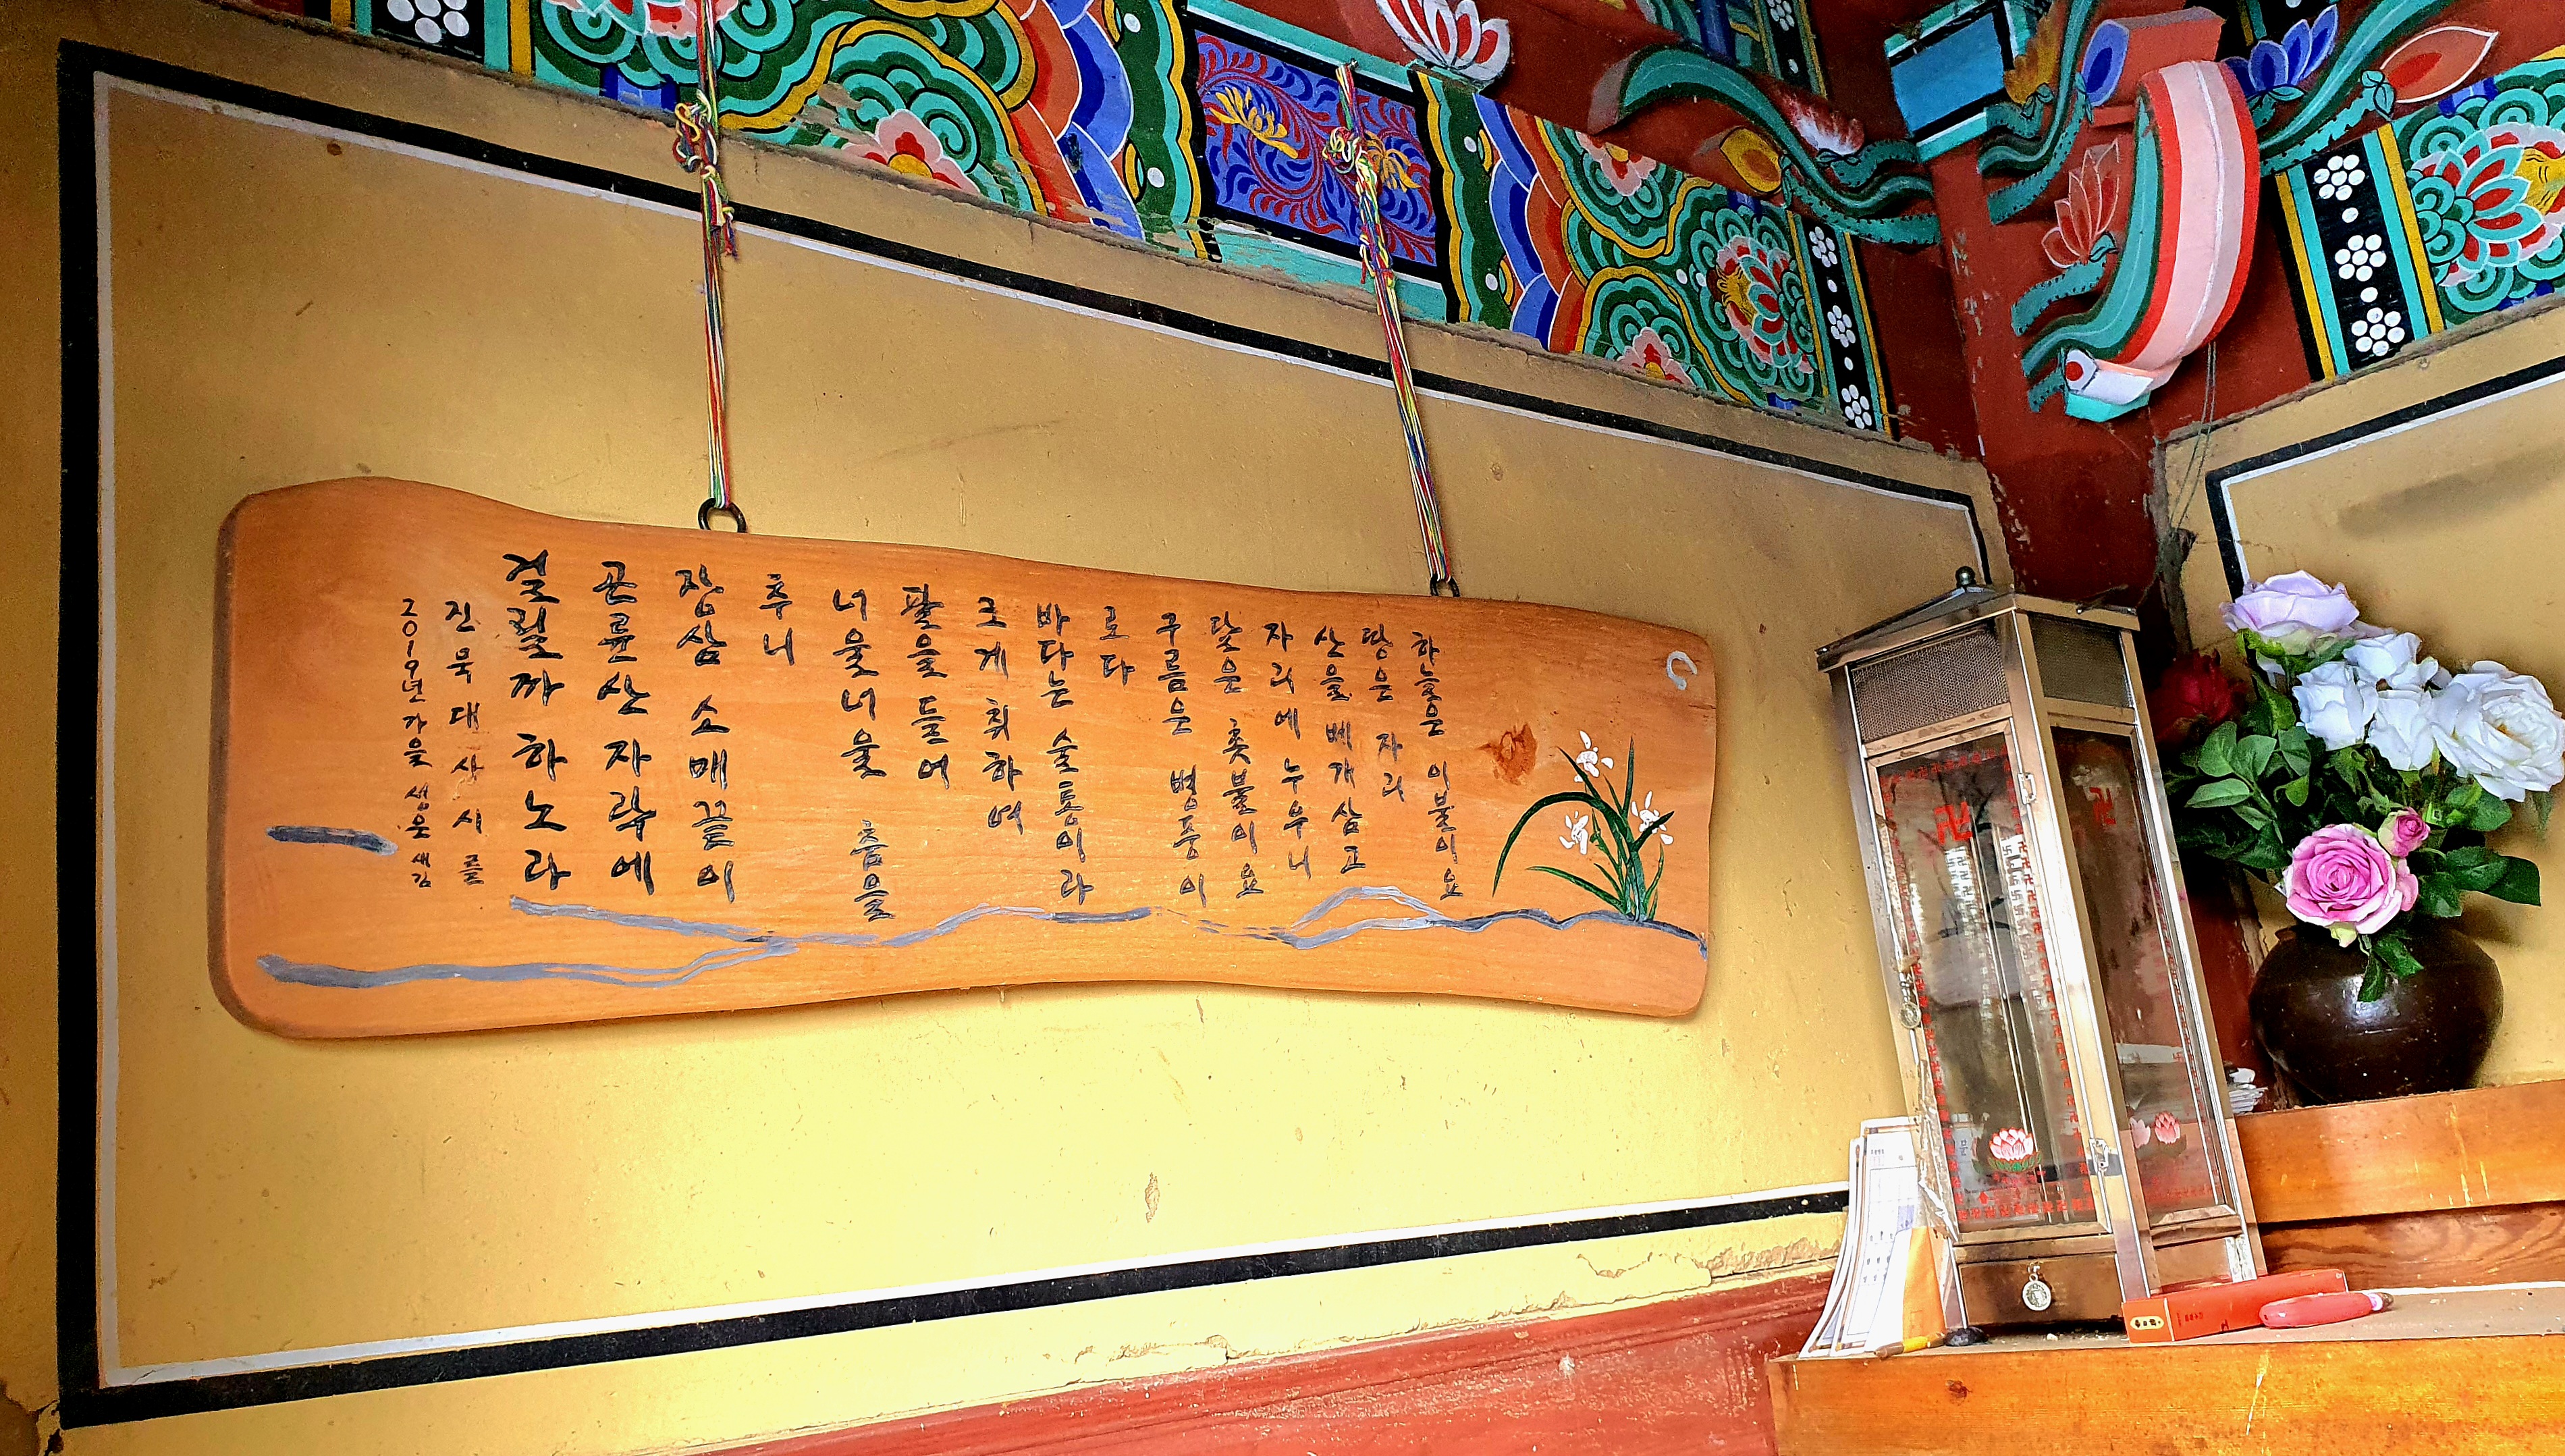 하늘은 이불이요
땅은 자리
산을 베개삼고
자리에 누우니
달은 촛불이요
구름은 병풍이
로다
바다는 술통이라
크게 취하여
팔을 들어
너울너울 춤을
추니
장삼 소매끝이
곤륜산 자락에
걸릴까 하노라
진묵대사 시 글
2019년 가을 생운 새김